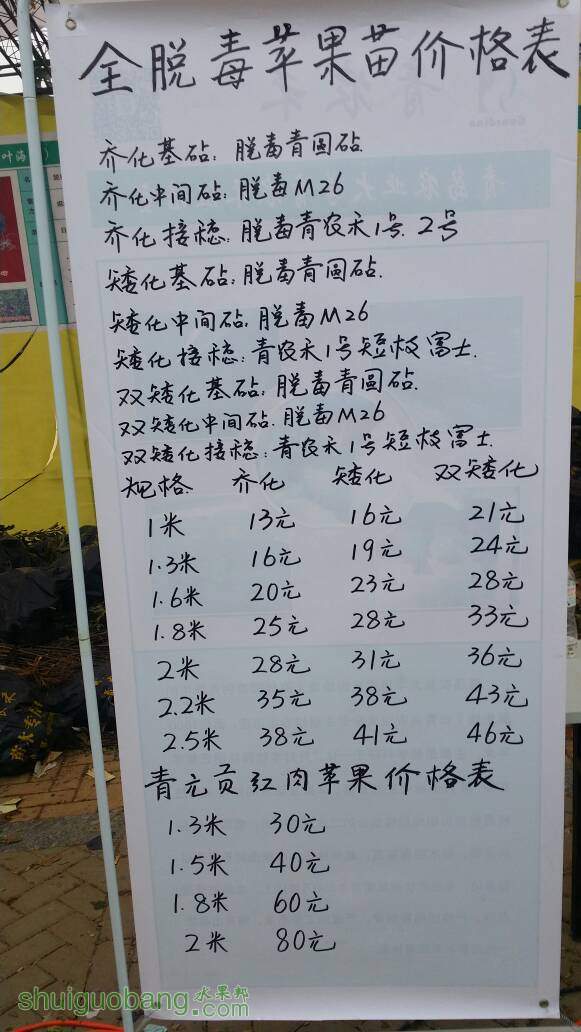 全脱毒苹果苗价格表
乔化基砧：脱毒青圆砧
乔化中间砧：脱毒M26
乔化接穗：脱毒青农禾1号、2号
矮化基砧：脱毒青圆砧.
矮化中间砧.脱毒M26
矮化接穗：青农禾1号短枝富士.
双矮化基砧：脱毒青圆砧
双矮化中间砧.脱毒M26
双矮化接穗：青农禾1号短枝富士.
规格 乔化 矮化 双矮化
1米 13元 16元 21元
1.3米 16元 19元 24元
1.6米 20元 23元 28元
1.8米 25元 28元 33元
2米 28元 31元 36元
2.2米 35元 38元 43元
2.5米 38元 41元 46元
青元贡红肉苹果价格表
1.3米 30元
1.5米 40元
1.8米 60元
2米 80元
shuiguobang.com 水果邦